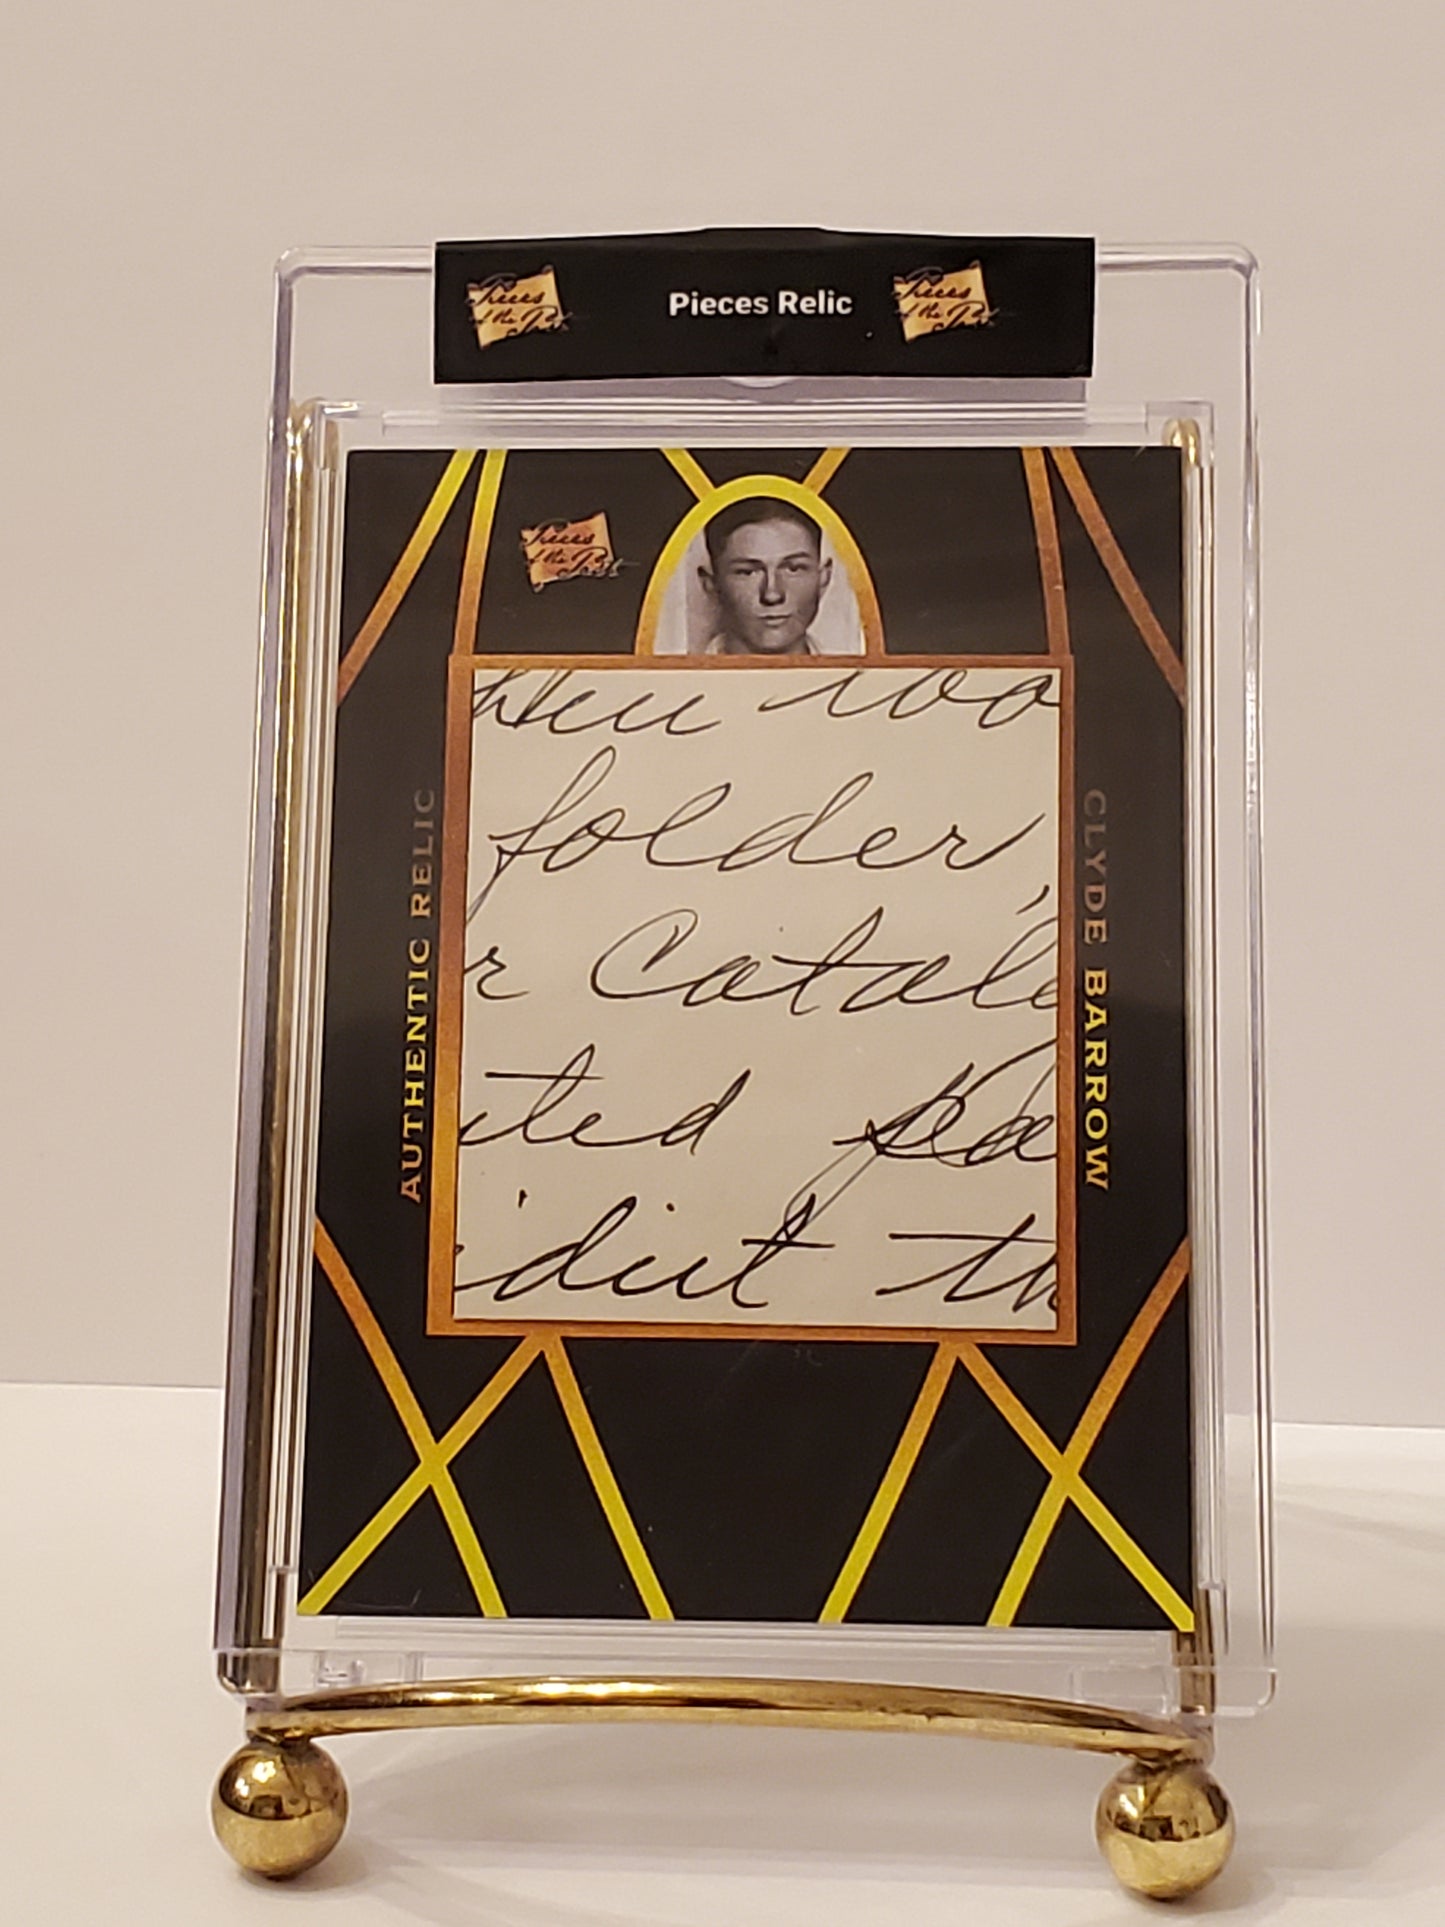 Pieces of the Past
Pieces Relic
Pieces of the Past
Pieces of the Past
AUTHENTIC RELIC
CLYDE BARROW
folder,
r Catalo
ited
dict th